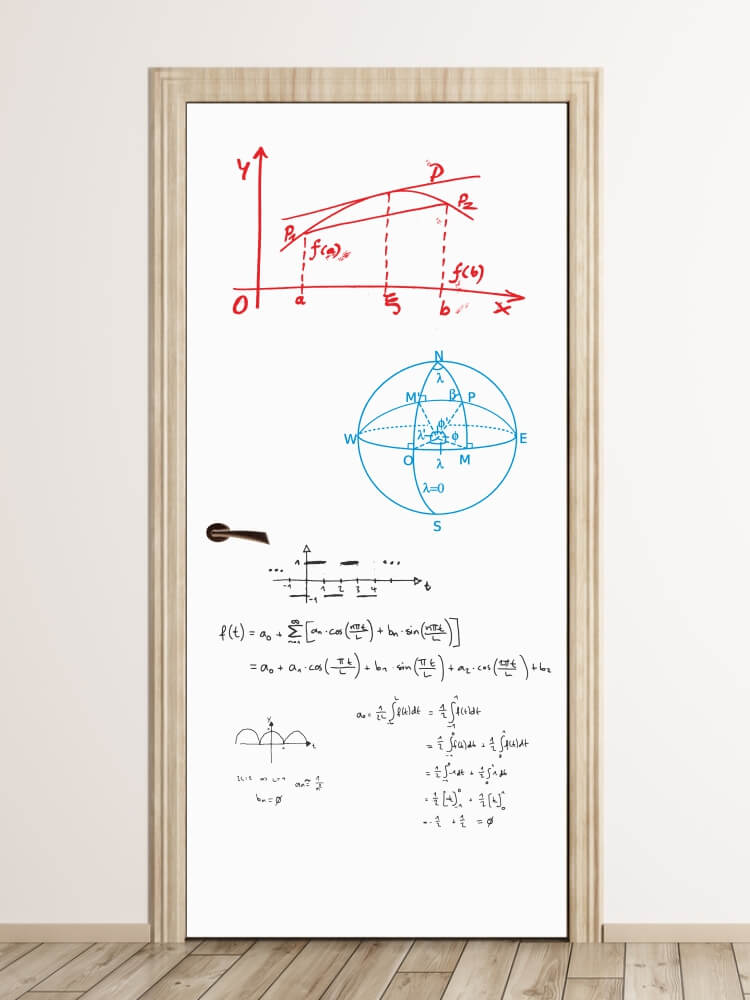 y
p
P₁
P₂
f(a)
f(b)
0 a ξ b x
N
λ
M' β P
φ'
W λ' φ E
O λ M
λ=0
S
... 1 ...
-1 1 2 3 4 t
-1
f(t) = a₀ + ∑ₙ₌₁^∞ [aₙ·cos(nπt/L) + bₙ·sin(nπt/L)]
= a₀ + a₁·cos(πt/L) + b₁·sin(πt/L) + a₂·cos(2πt/L) + b₂
a₀ = 1/2L ∫f(t)dt = 1/2 ∫₋₁¹ f(t)dt
= 1/2 ∫₋₁⁰ f(t)dt + 1/2 ∫₀¹ f(t)dt
= 1/2 ∫₋₁⁰ -1dt + 1/2 ∫₀¹ 1dt
= 1/2 [-t]₋₁⁰ + 1/2 [t]₀¹
= -1/2 + 1/2 = ∅
y
t
2L=2 => L=1 aₙ≈ 1/n²
bₙ = ∅